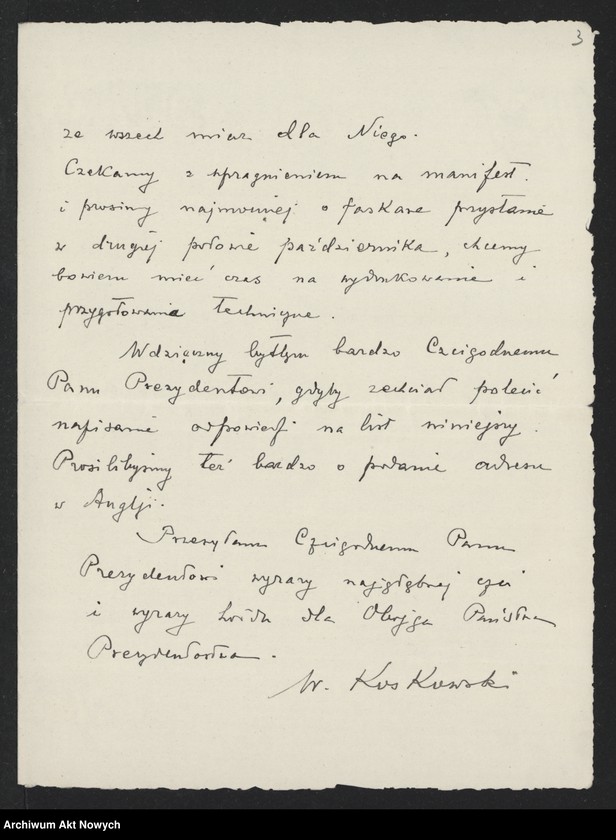 3
ze wszech miar dla Niego.
Czekamy z upragnieniem na manifest.
i prosimy najmocniej o łaskawe przysłanie
w drugiej połowie października, chcemy
bowiem mieć czas na wydrukowanie i
przygotowania techniczne.
Wdzięczny byłbym bardzo Czcigodnemu
Panu Prezydentowi, gdyby zechciał polecić
napisanie odpowiedzi na list niniejszy.
Prosilibyśmy też bardzo o podanie adresu
w Anglji.
Przesyłam Czcigodnemu Panu
Prezydentowi wyrazy najgłębszej czci
i wyrazy hołdu dla Obojga Państwa
Prezydentostwa.
W. Koskowski
Archiwum Akt Nowych